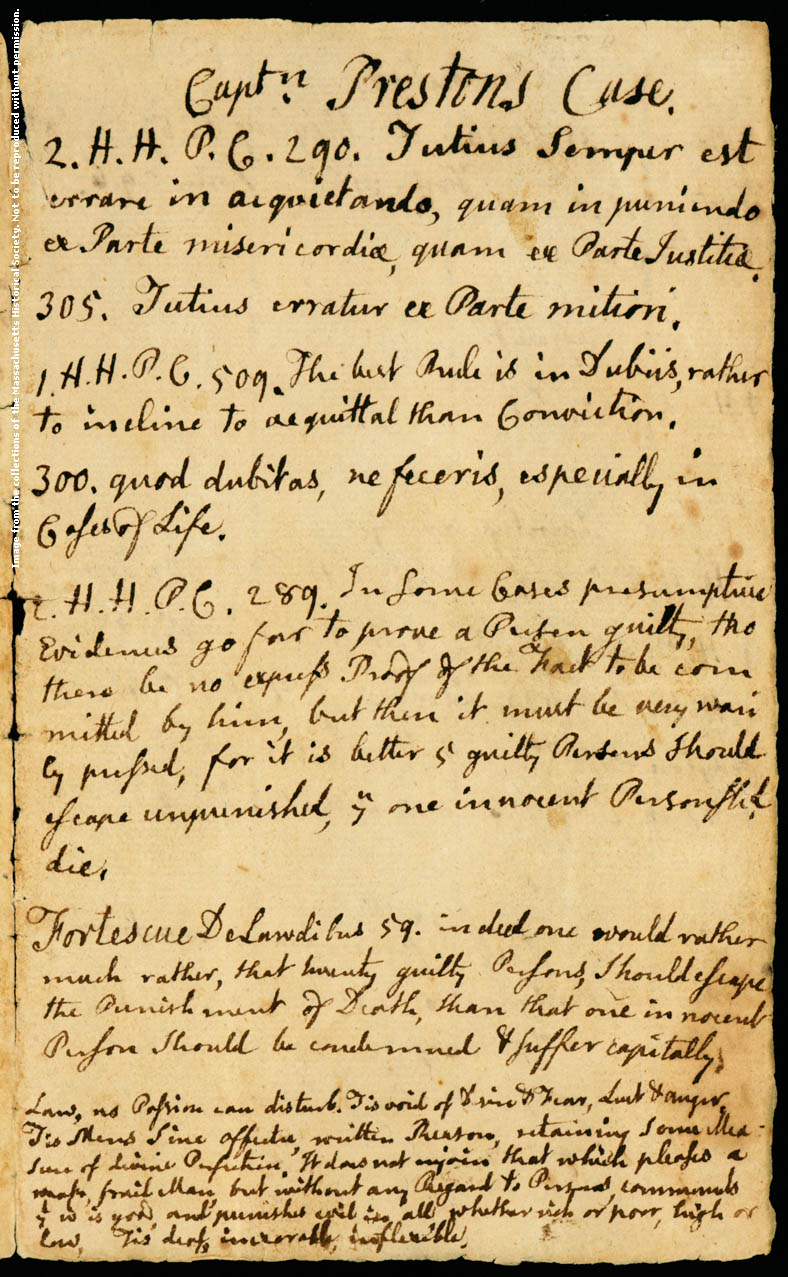 Image from the collections of the Massachusetts Historical Society. Not to be reproduced without permission.
Captn. Prestons Case.
2. H. H. P. C. 290. Tutius Semper est
errare in acquietando, quam in puniendo
ex Parte misericordiæ, quam ex Parte Justitiæ.
305. Tutius erratur ex Parte mitiori.
1. H. H. P. C. 509. The best Rule is in Dubiis, rather
to incline to acquittal than Conviction.
300. quod dubitas, ne feceris, especially in
Cases of Life.
2. H. H. P. C. 289. In Some Cases presumptive
Evidences go far to prove a Person guilty, tho
there be no express Proof of the Fact to be com
mitted by him, but then it must be very wari
ly pressed, for it is better 5 guilty Persons Should
escape unpunished, yn one innocent Person shd.
die.
Fortescue De Laudibus 59. indeed one would rather
much rather, that twenty guilty Persons, Should escape
the Punishment of Death, than that one innocent
Person Should be condemned & suffer capitally.
Law, no Passion can disturb. Tis void of desire & Fear, Lust & anger.
Tis Mens Sine affectu, written Reason, retaining Some Mea-
sure of divine Perfection. It does not enjoin that which pleases a
weak, frail Man, but without any Regard to Persons, commands
yt wh is good, and punishes evil in all, whether rich or poor, high or
low, Tis deaf, inexorable, inflexible.